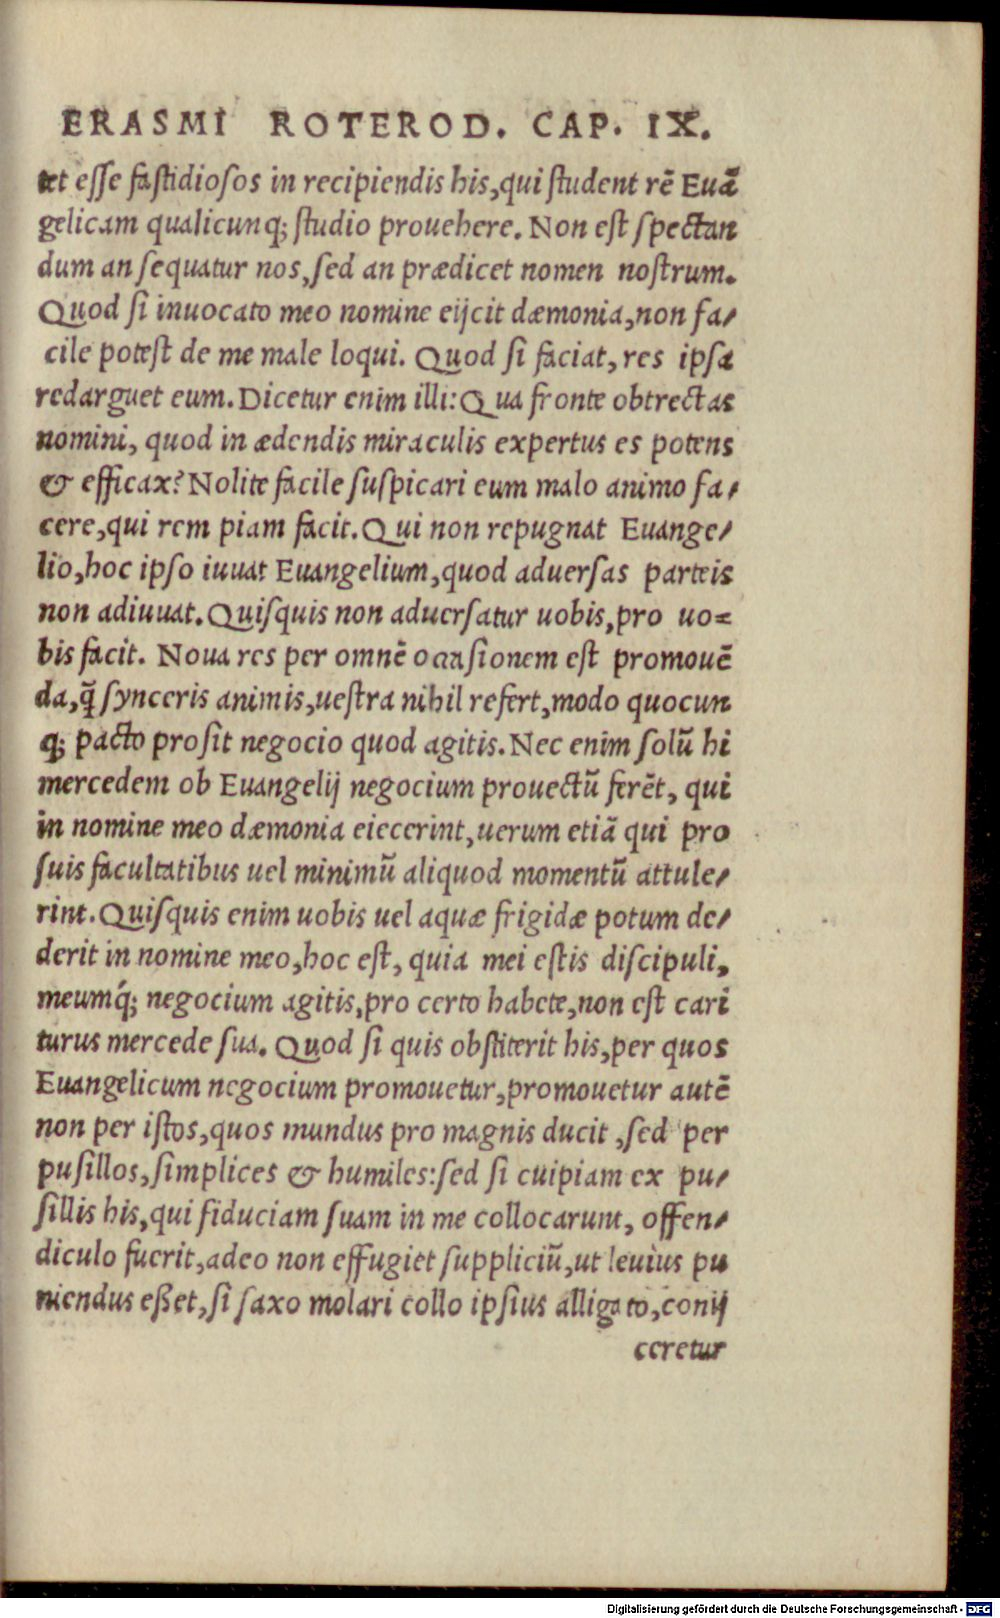 ERASMI ROTEROD. CAP. IX.
tet esse fastidiosos in recipiendis his, qui student rē Euā
gelicam qualicunq; studio prouehere. Non est spectan
dum an sequatur nos, sed an prædicet nomen nostrum.
Quod si inuocato meo nomine eijcit dæmonia, non fa-
cile potest de me male loqui. Quod si faciat, res ipsa
redarguet eum. Dicetur enim illi: Qua fronte obtrectas
nomini, quod in ædendis miraculis expertus es potens
& efficax? Nolite facile suspicari eum malo animo fa-
cere, qui rem piam facit. Qui non repugnat Euange-
lio, hoc ipso iuuat Euangelium, quod aduersas parteis
non adiuuat. Quisquis non aduersatur uobis, pro uo=
bis facit. Noua res per omnē occasionem est promouē
da, q̄ synceris animis, uestra nihil refert, modo quocun
q; pacto prosit negocio quod agitis. Nec enim solū hi
mercedem ob Euangelij negocium prouectū ferēt, qui
in nomine meo dæmonia eiecerint, uerum etiā qui pro
suis facultatibus uel minimū aliquod momentū attule-
rint. Quisquis enim uobis uel aquæ frigidæ potum de-
derit in nomine meo, hoc est, quia mei estis discipuli,
meumq́; negocium agitis, pro certo habete, non est cari
turus mercede sua. Quod si quis obstiterit his, per quos
Euangelicum negocium promouetur, promouetur autē
non per istos, quos mundus pro magnis ducit, sed per
pusillos, simplices & humiles: sed si cuipiam ex pu-
sillis his, qui fiduciam suam in me collocarunt, offen-
diculo fuerit, adeo non effugiet suppliciū, ut leuius pu
niendus eßet, si saxo molari collo ipsius alligato, conij
ceretur
Digitalisierung gefördert durch die Deutsche Forschungsgemeinschaft - DFG